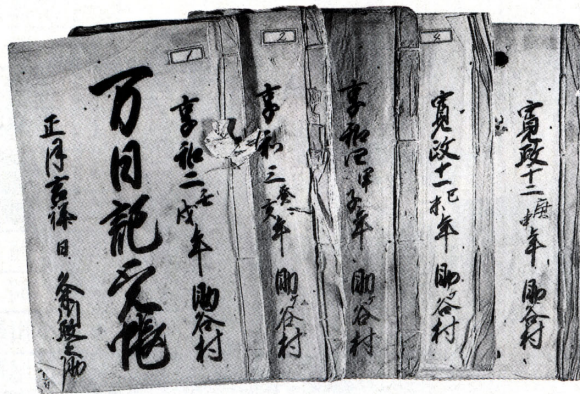 寛政十二庚申年 助谷村
4
寛政十一己未年 助谷村
享和四甲子年 助ヶ谷村
2
享和三癸亥年 助ヶ谷村
1
享和二壬戌年 助谷村
万日記覚帳
正月吉祥日